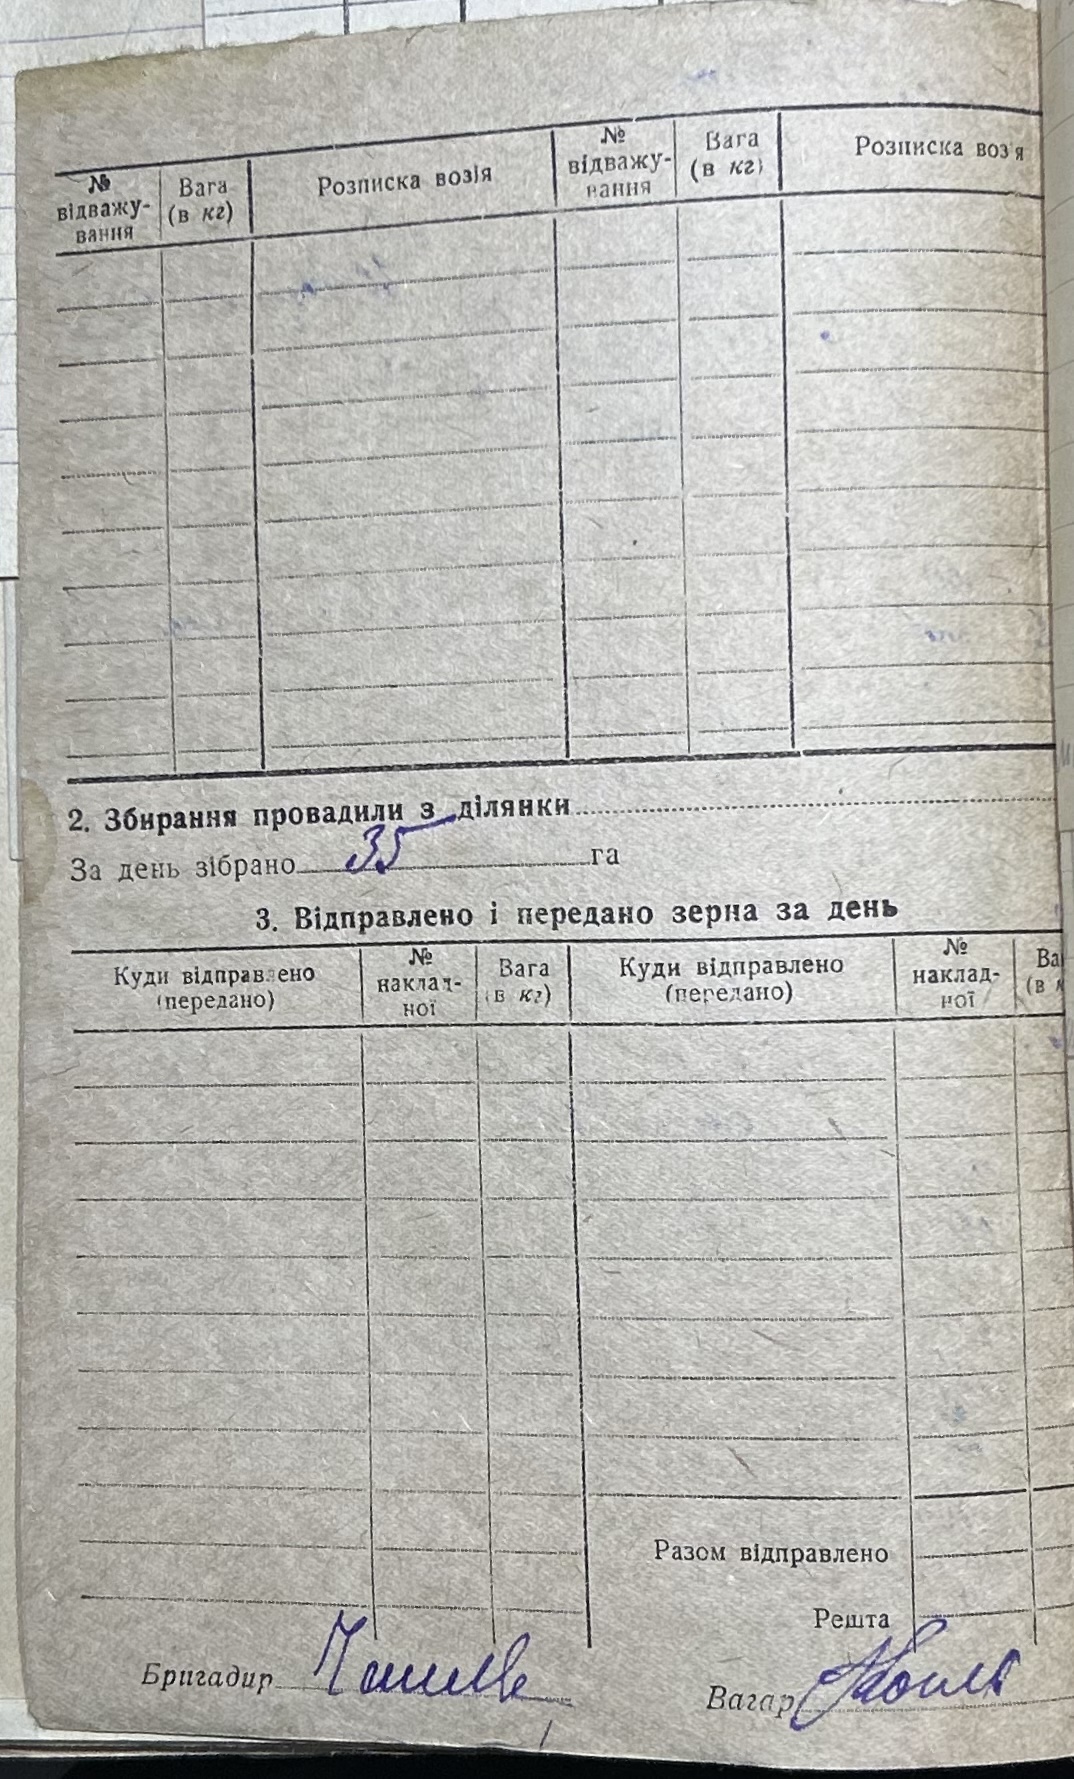 № відважу-вання | Вага (в кг) | Розписка возія | № відважу-вання | Вага (в кг) | Розписка воз'я
2. Збирання провадили з ділянки
За день зібрано 35 га
3. Відправлено і передано зерна за день
Куди відправлено (передано) | № наклад-ної | Вага (в кг) | Куди відправлено (передано) | № наклад-ної | Ва (в к
Разом відправлено
Решта
Бригадир
Вагар